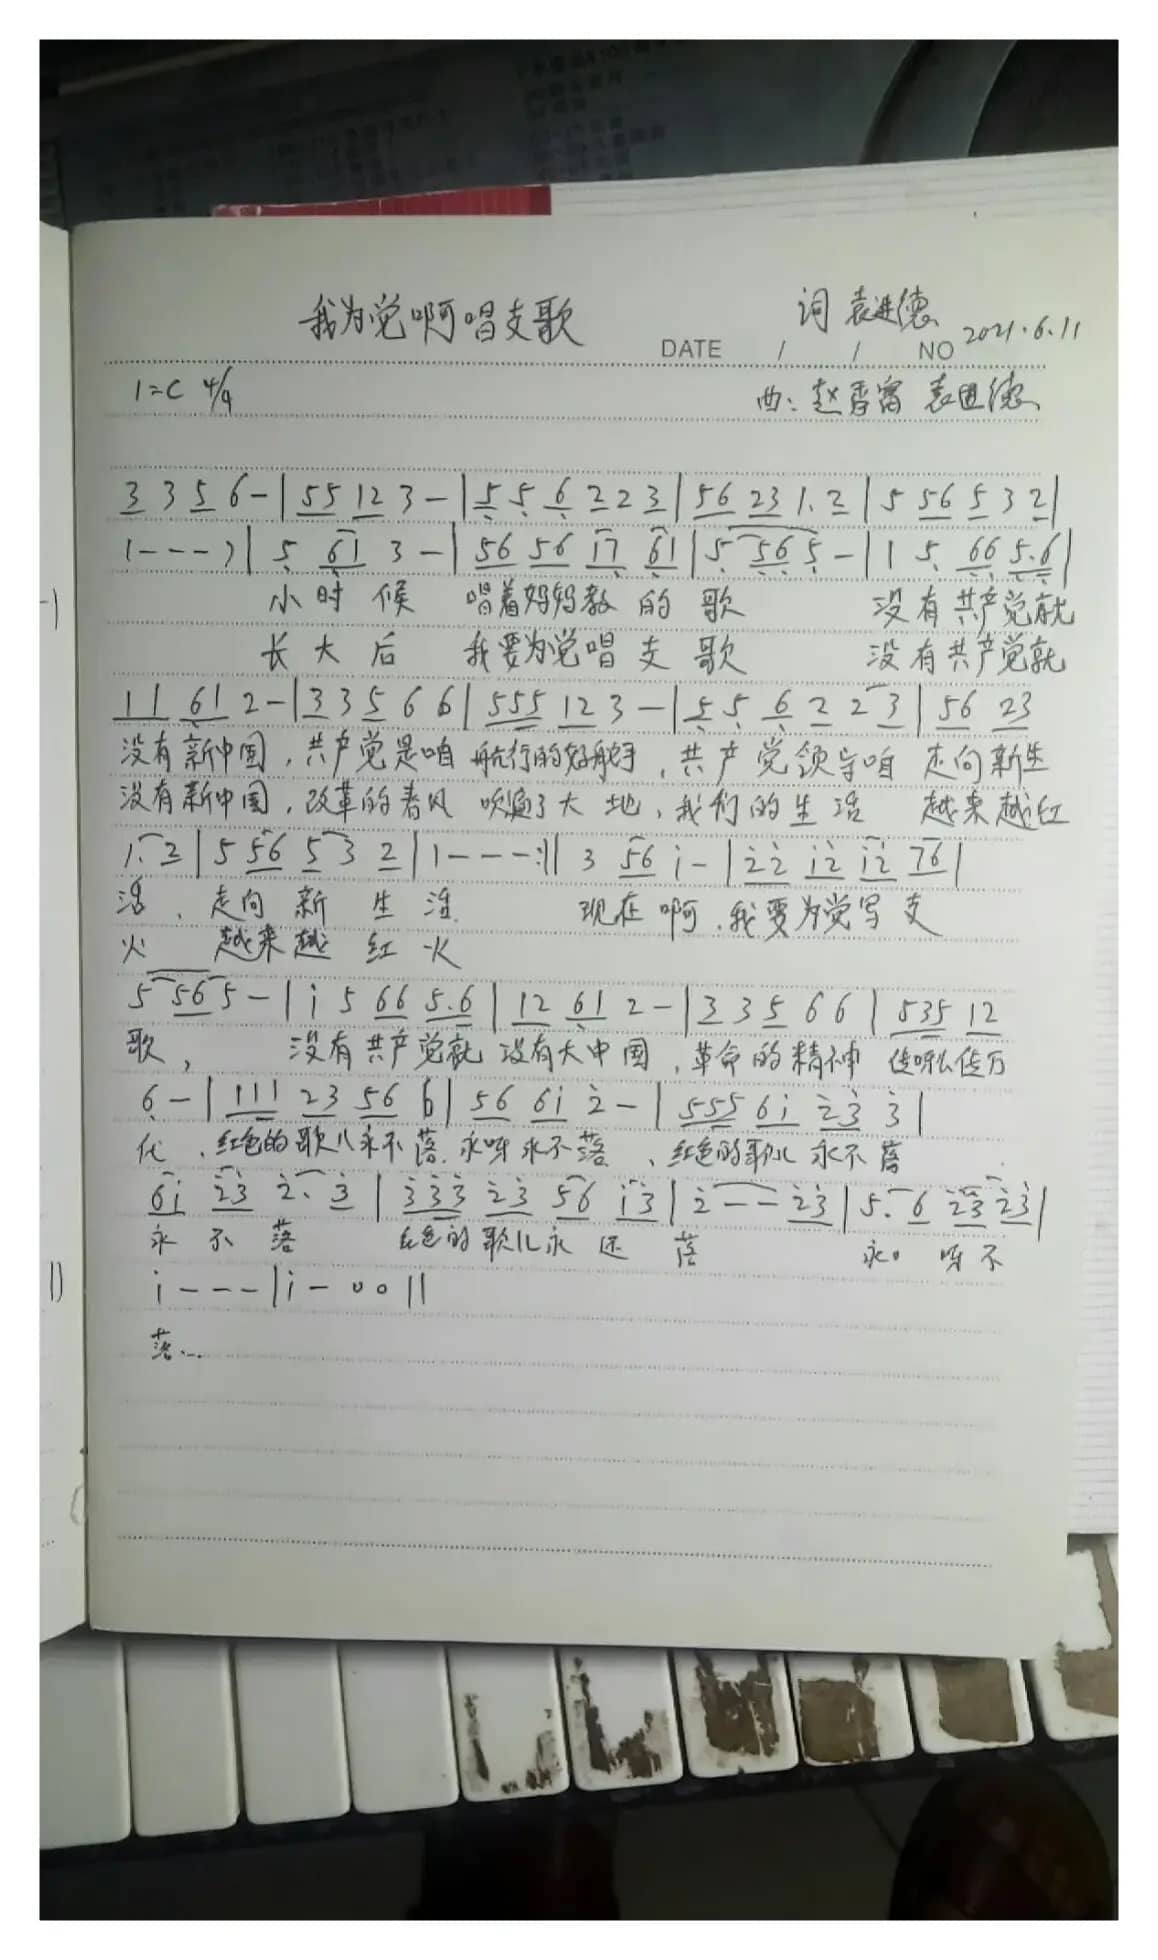 我为党啊唱支歌
词 袁进德
2021.6.11
DATE / / NO
1=C 4/4
曲: 赵香富 袁进德
3 3 5 6 - | 55 12 3 - | 5 5 6 2 2 3 | 56 23 1. 2 | 5 56 5 3 2 |
1 - - - ) | 5 61 3 - | 56 56 i7 61 | 5 56 5 - | 1 5 66 5.6 |
小时候 唱着妈妈教的歌 没有共产党就
长大后 我要为党唱支歌 没有共产党就
11 61 2 - | 3 3 5 6 6 | 555 12 3 - | 5 5 6 2 2 3 | 56 23
没有新中国,共产党是咱 航行的好舵手,共产党领导咱 走向新生
没有新中国,改革的春风 吹遍了大地,我们的生活 越来越红
1. 2 | 5 56 5 3 2 | 1 - - - :|| 3 56 i - | 22 i2 i2 76 |
活、走向新生活 现在啊,我要为党写支
火 越来越红火
5 56 5 - | i 5 66 5.6 | 12 61 2 - | 3 3 5 6 6 | 535 12
歌, 没有共产党就 没有大中国,革命的精神 传呀么传万
6 - | 111 23 56 6 | 56 6i 2 - | 555 6i 23 3 |
代、红色的歌儿永不落.永呀永不落、红色的歌儿永不落
6i 23 2. 3 | 333 23 56 i3 | 2 - - 23 | 5. 6 23 23 |
永不落 红色的歌儿永还落 永 呀不
i - - - | i - 0 0 ||
落...